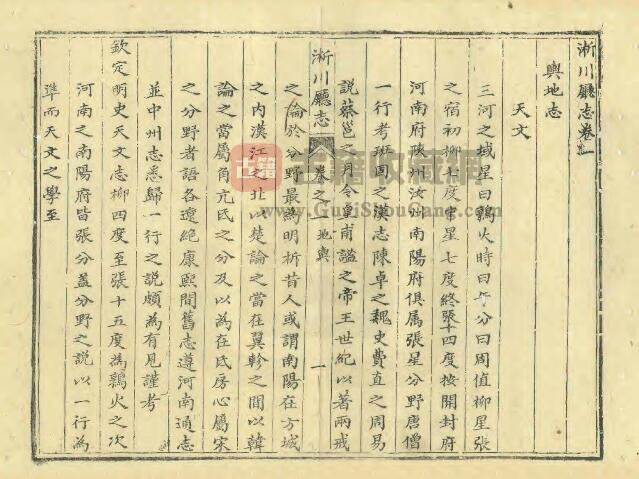 淅川廳志卷之一
輿地志
天文
三河之域星曰鶉火時曰午分曰周值柳星張
之宿初柳七度中星七度終張十四度按開封府
河南府陝州汝州南陽府俱属張星分野唐僧
一行考班固之漢志陳卓之魏史費直之周易
說蔡邕之月令皇甫謐之帝王世紀以著兩戒
淅川廳志 卷之一 地輿 一
之論於分野最為明析昔人或謂南陽在方城
之内漢江之北以楚論之當在翼軫之間以韓
論之當屬角亢氐之分及以為在氐房心屬宋
之分野者語各遼絶康熙間舊志遵河南通志
並中州志悉歸一行之說頗為有見謹考
欽定明史天文志柳四度至張十五度為鶉火之次
河南之南陽府皆張分盖分野之說以一行為
準而天文之學至
古籍收藏網
www.GujiShouCang.com